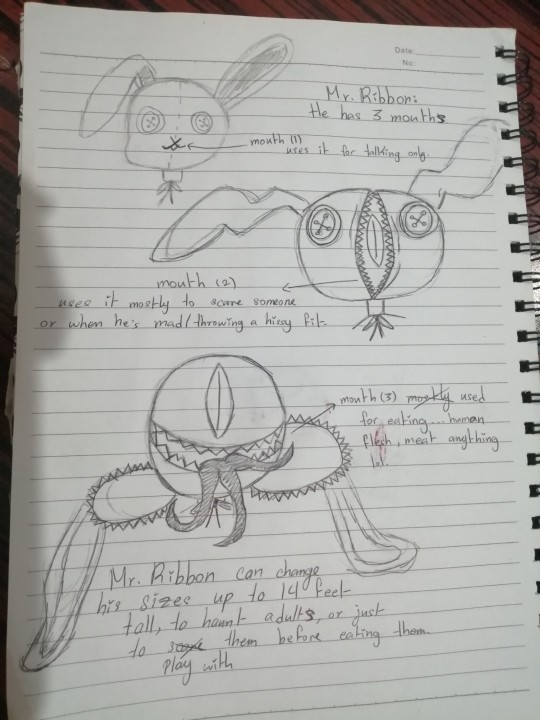 Date:
No:
Mr. Ribbon:
He has 3 mouths
mouth (1)
uses it for talking only.
mouth (2)
uses it mostly to scare someone
or when he's mad/throwing a hissy fit.
mouth (3) mostly used
for eating... human
flesh, meat anything
lol.
Mr. Ribbon can change
his sizes up to 14 feet
tall, to haunt adults, or just
to scare them before eating them.
play with